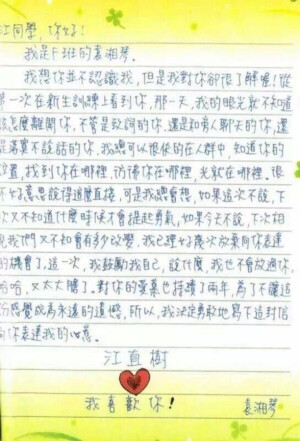 江同學，你好！
我是F班的袁湘琴．
我想你並不認識我，但是我對你卻很了解喔！從
第一次在新生訓練上看到你，那一天，我的眼光就不知道
該怎麼離開你，不管是致詞的你．還是和旁人聊天的你，還
是沉默不說話的你．我總可以很快的在人群中，知道你的
位置，找到你在哪裡，彷彿你在哪裡，光就在哪裡，很
不好意思說得這麼直接，可是我總會想，如果這次不說，下
次又不知道什麼時候才會提起勇氣，如果今天不說，下次相
見我們又不知會有多少改變．我已經好幾次放棄向你表達
的機會了，這一次，我鼓勵我自己，說什麼，我也不會放過你，
哈哈，又太大膽了．對你的愛慕也持續了兩年，為了不讓這
份感覺成為永遠的遺憾，所以，我決定勇敢地寫下這封信
向你表達我的心意．
江直樹
我喜歡你！ 袁湘琴